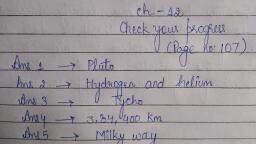 ch - 12
Check your progress
(Page no: 107)
Ans 1 → Pluto
Ans 2 → Hydrogen and helium
Ans 3 → Tycho
Ans 4 → 3,84,400 km
Ans 5 → Milky way